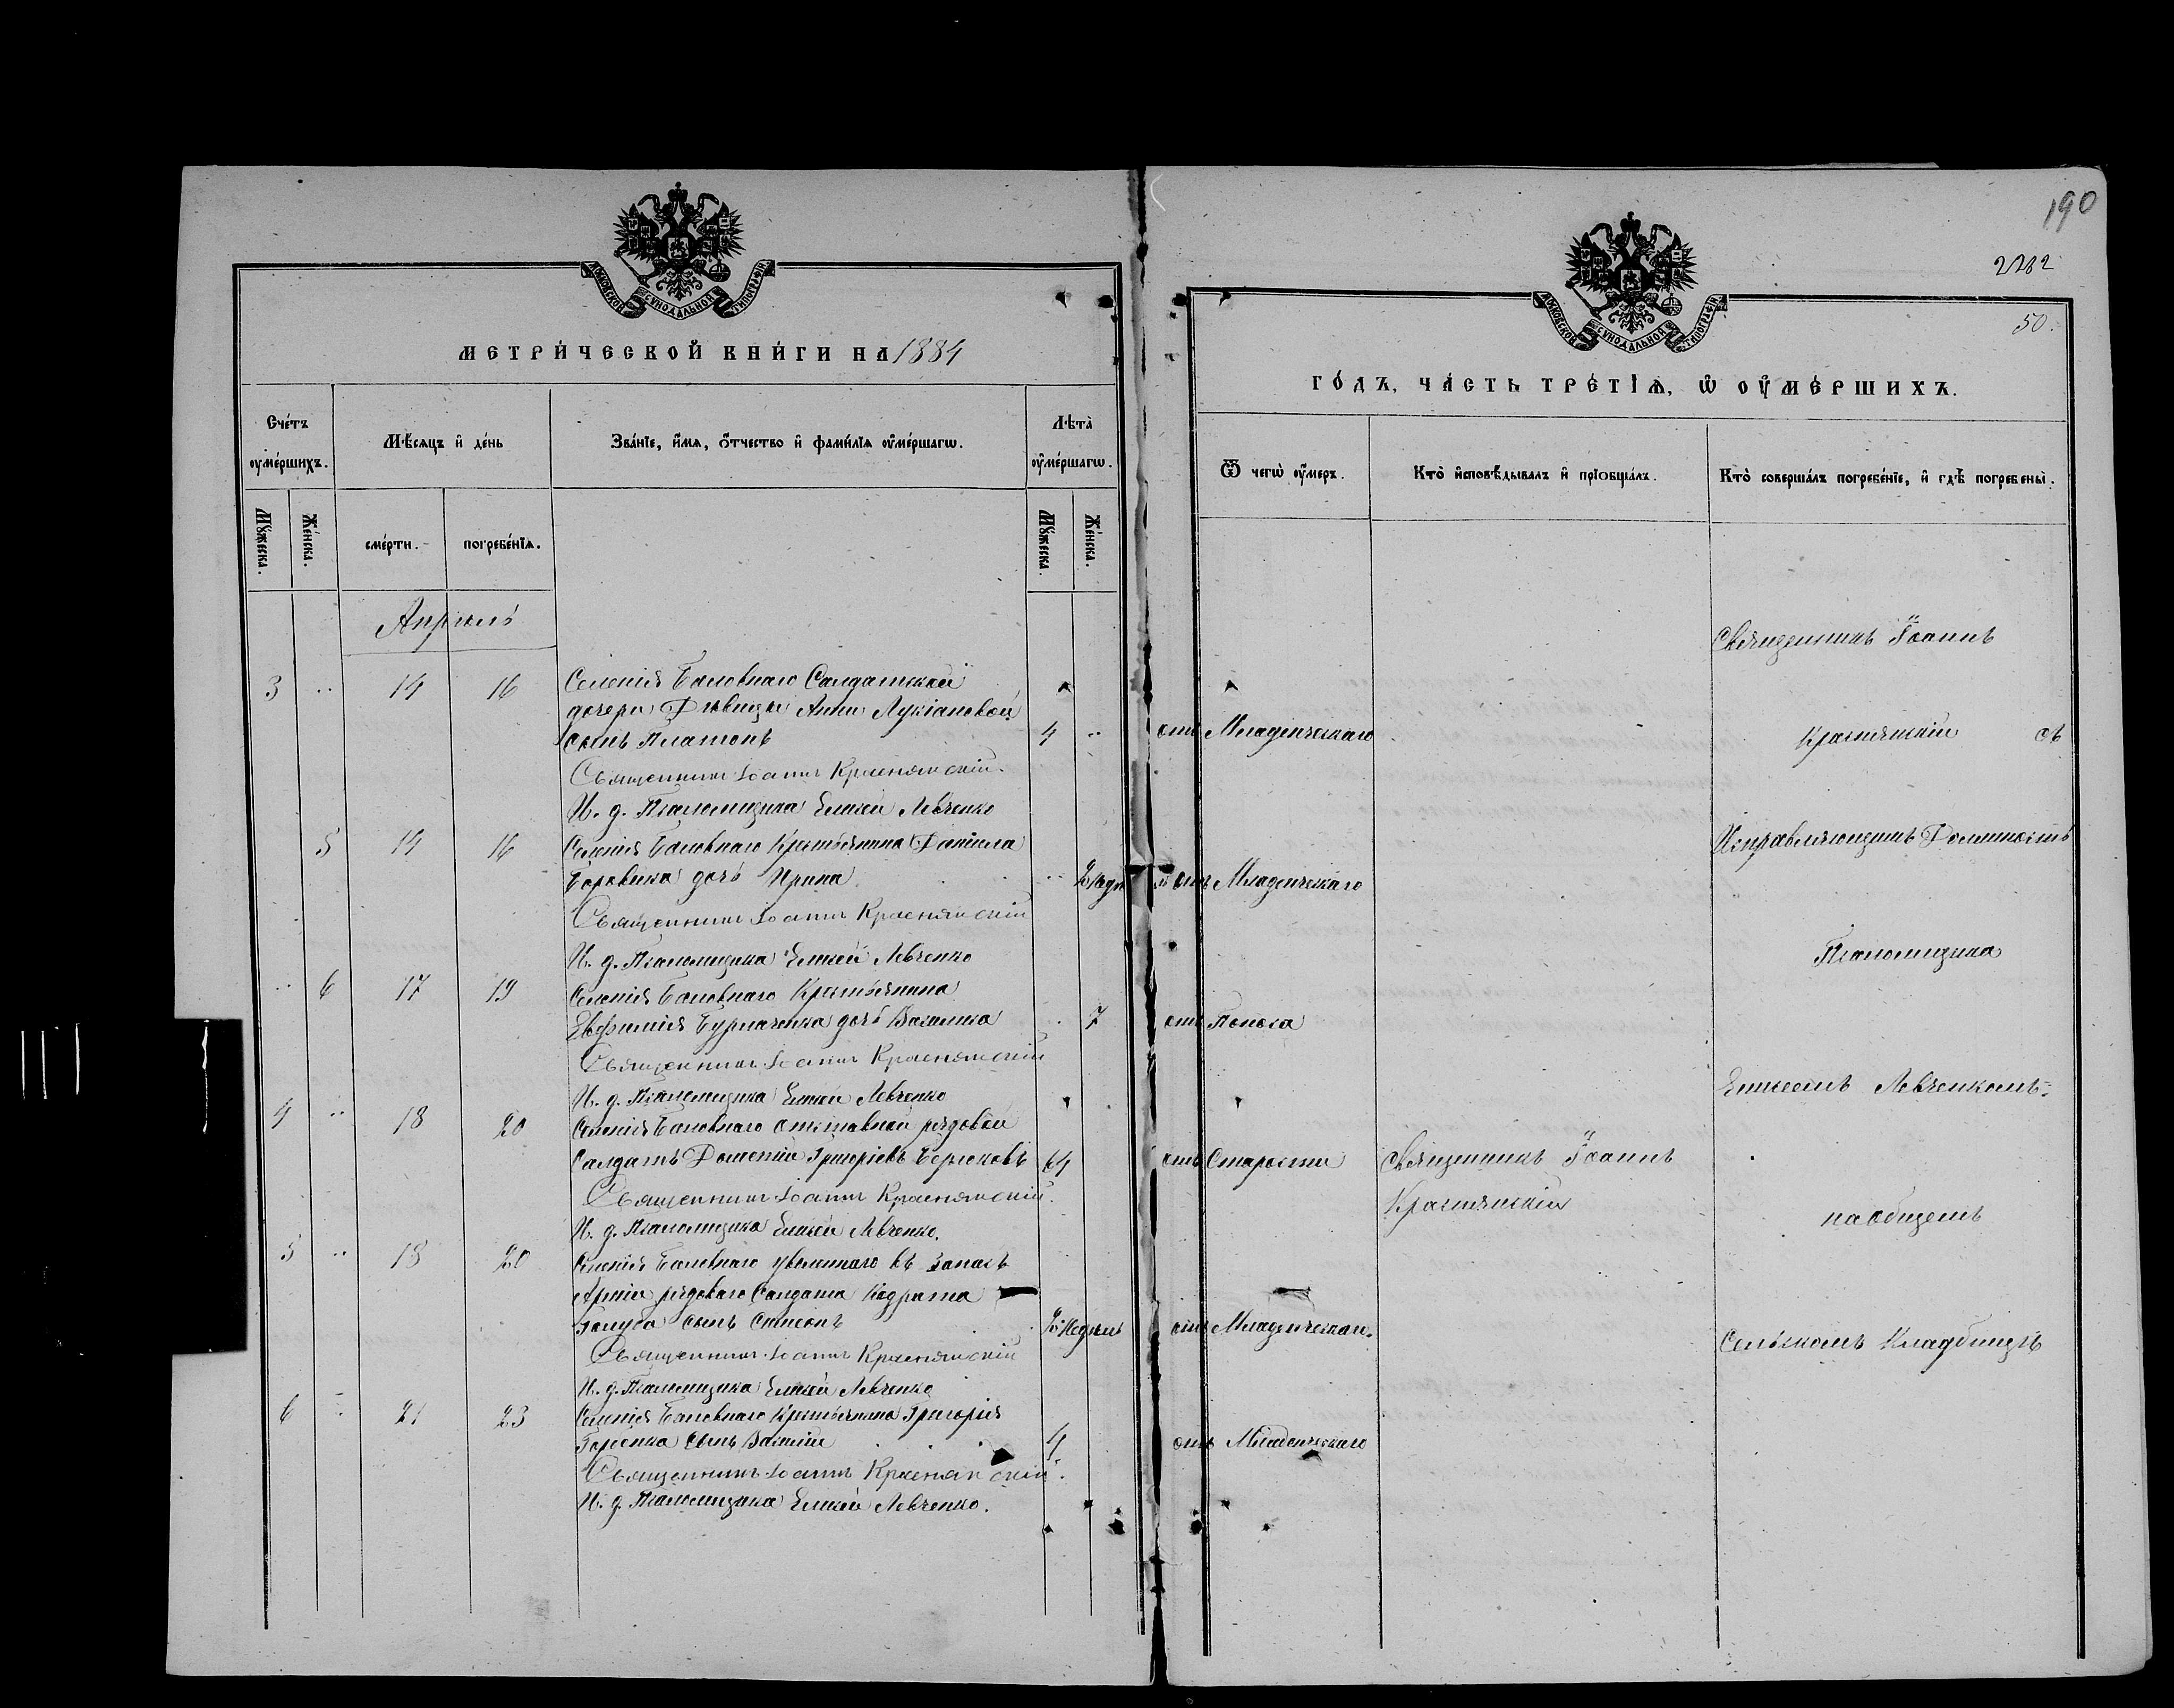 МОСКОВСКОЙ СѴНОДАЛЬНОЙ ТИПОГРАФІИ
МЕТРИ́ЧЕСКОЙ КНИ́ГИ НА 1884
Сче́тъ ᲂу҆ме́ршихъ.
Мѣ́сяцъ и҆ де́нь
Зва́нїе, и҆́мя, ѻ҆́тчество и҆ фами́лїя ᲂу҆ме́ршагѡ.
Лѣта̀ ᲂу҆ме́ршагѡ.
Мꙋ́жеска.
Же́нска.
сме́рти.
погребе́нїѧ.
Мꙋ́жеска.
Же́нска.
Апрель
3 .. 14 16 Селенія Баловнаго Салдатской
дочери Дѣвицы Анны Лукіановой
сынъ Платонъ 4 ..
Священникъ Іоаннъ Краснянскій.
И. д. Псаломщика Елисей Левченко
5 14 16 Селенія Баловнаго Крестьянина Даніила
дочь Ирина ..
Священникъ Іоаннъ Краснянскій
И. д. Псаломщика Елисей Левченко
.. 6 17 19 Селенія Баловнаго Крестьянина
Евфимія дочь Василиса . 7
Священникъ Іоаннъ Краснянскій
И. д. Псаломщика Елисей Левченко
4 .. 18 20 Селенія Баловнаго отставной рядовой
Салдатъ Дометій Григоріевъ Бирюковъ 64
Священникъ Іоаннъ Краснянскій.
И. д. Псаломщика Елисей Левченко.
5 .. 18 20 Селенія Баловнаго уволеннаго въ запасъ
Арміи рядоваго Салдата Кодрата
Голуба сынъ Симеонъ 2 Недѣль
Священникъ Іоаннъ Краснянскій
И. д. Псаломщика Елисей Левченко
6 .. 21 23 Селенія Баловнаго Крестьянина Григорія
сынъ Василій 4
Священникъ Іоаннъ Краснянскій.
И. д. Псаломщика Елисей Левченко.
190
2282
50.
МОСКОВСКОЙ СѴНОДАЛЬНОЙ ТИПОГРАФІИ
ГО́ДЪ, ЧА́СТЬ ТРЕ́ТЇѦ, Ѡ҆ ОУ҆МЕ́РШИХЪ.
Ѿ чегѡ̀ ᲂу҆́меръ.
Кто̀ и҆сповѣ́дывалъ и҆ прїобща́лъ.
Кто̀ соверша́лъ погребе́нїе, и҆ гдѣ̀ погребены̀.
Священникъ Іоаннъ
отъ Младенческаго
Краснянскій съ
Исправляющимъ Должность
отъ Младенческаго
Псаломщика
отъ Поноса
Елисеемъ Левченкомъ.
отъ Старости
Священникъ Іоаннъ
Краснянскій
на общемъ
отъ Младенческаго.
Сельскомъ Кладбищѣ
отъ Младенческаго